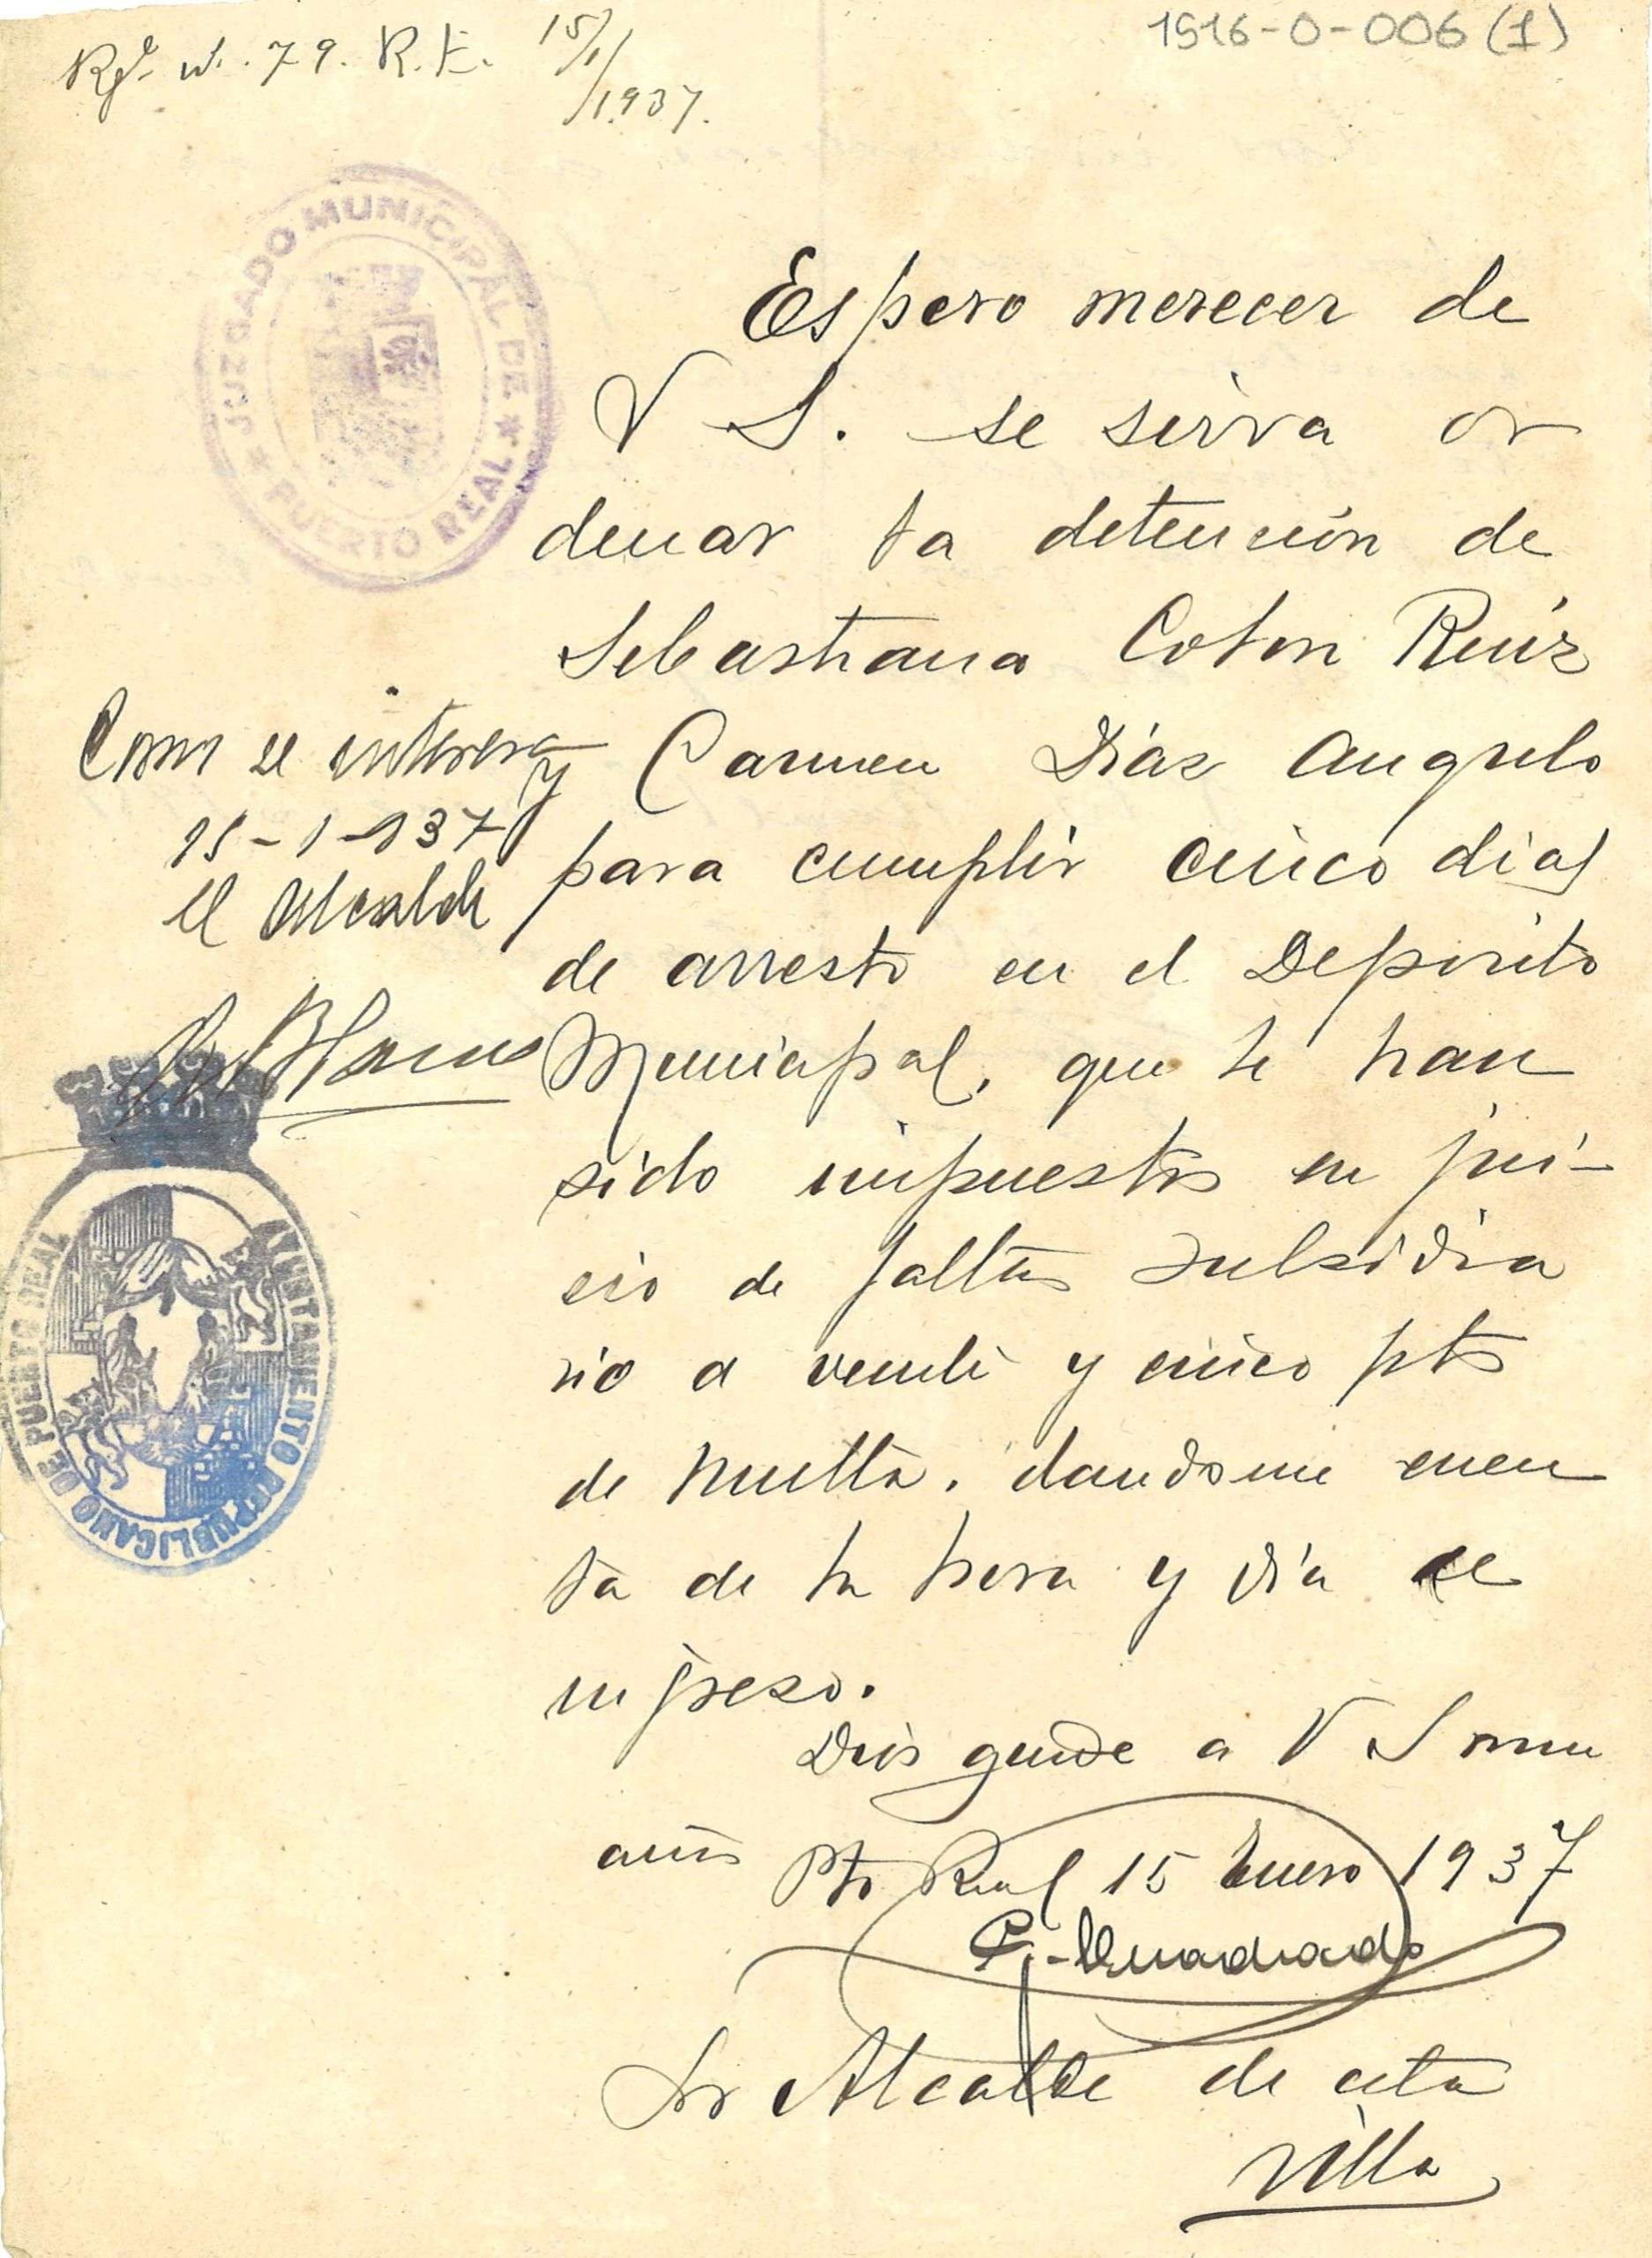 1516-0-006 (1)
Rgº n. 79. R.E. 15/1/1937.
JUZGADO MUNICIPAL DE
* PUERTO REAL *
Espero merecer de
V S. se sirva or
denar la detención de
Sebastiana Coton Ruiz
y Carmen Díaz Angulo
para cumplir cinco dias
de arresto en el Deposito
Municipal, que le han
sido impuestos en jui-
cio de faltas subsidia
rio a veinte y cinco pts
de multa. dandome cuen
ta de la hora y día de
ingreso.
Dios guarde a V S mu
años Pto Real 15 Enero 1937
Cuadrado
Sr Alcalde de esta
Villa
Como se interesa
15-1-937
El Alcalde
AYUNTAMIENTO REPUBLICANO DE PUERTO REAL